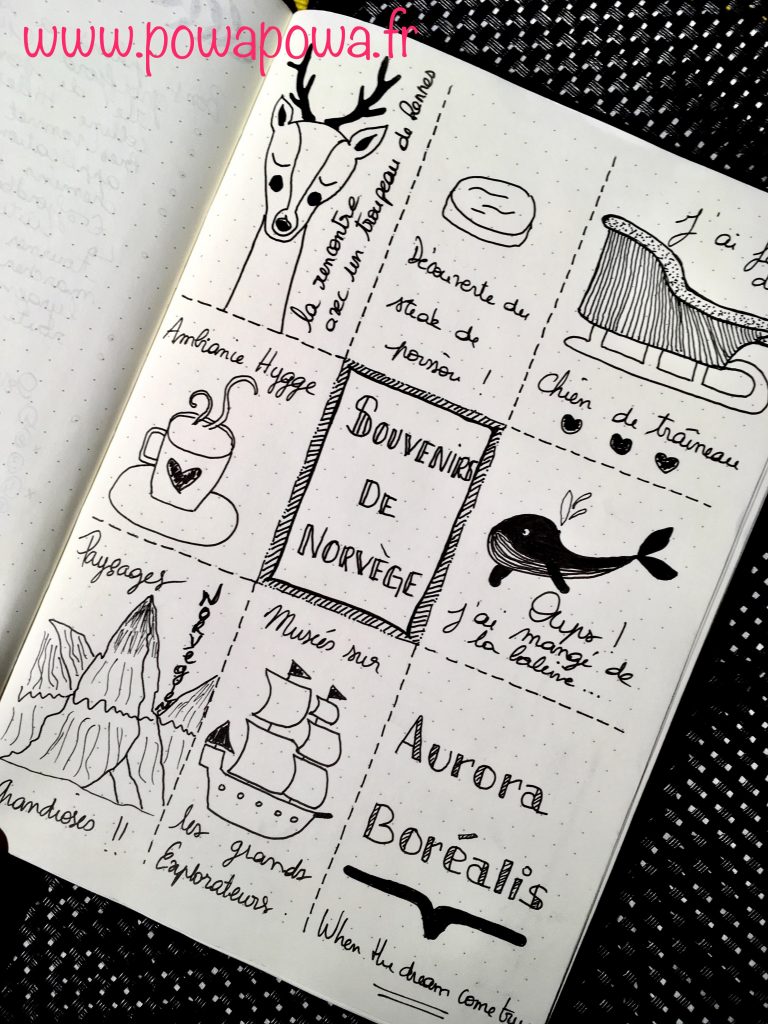 www.powapowa.fr
la rencontre
avec un troupeau de Rennes
Découverte du
steak de
poisson !
J'ai
Chien de traîneau
Ambiance Hygge
SOUVENIRS
DE
NORVÈGE
Oups !
J'ai mangé de
la baleine...
Paysages
Norvégiens
Grandioses !!
Musés sur
les grands
Explorateurs.
Aurora
Boréalis
When the dream come tru